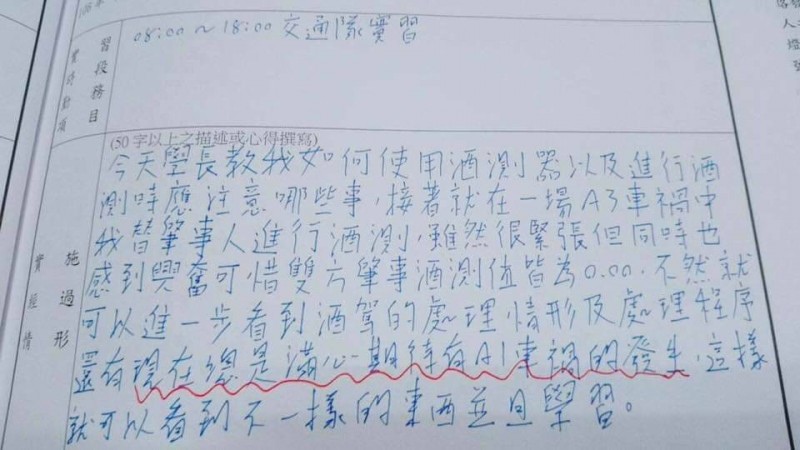 08:00~18:00 交通隊實習
習段務目
實時勤項
(50字以上之描述或心得撰寫)
今天學長教我如何使用酒測器以及進行酒
測時應注意哪些事,接著就在一場A3車禍中
我替肇事人進行酒測,雖然很緊張但同時也
感到興奮可惜雙方肇事酒測值皆為0.00.不然就
可以進一步看到酒駕的處理情形及處理程序
還有現在總是滿心期待有A1車禍的發生,這樣
就可以看到不一樣的東西並且學習。
施過形
實經情
人
燈
號